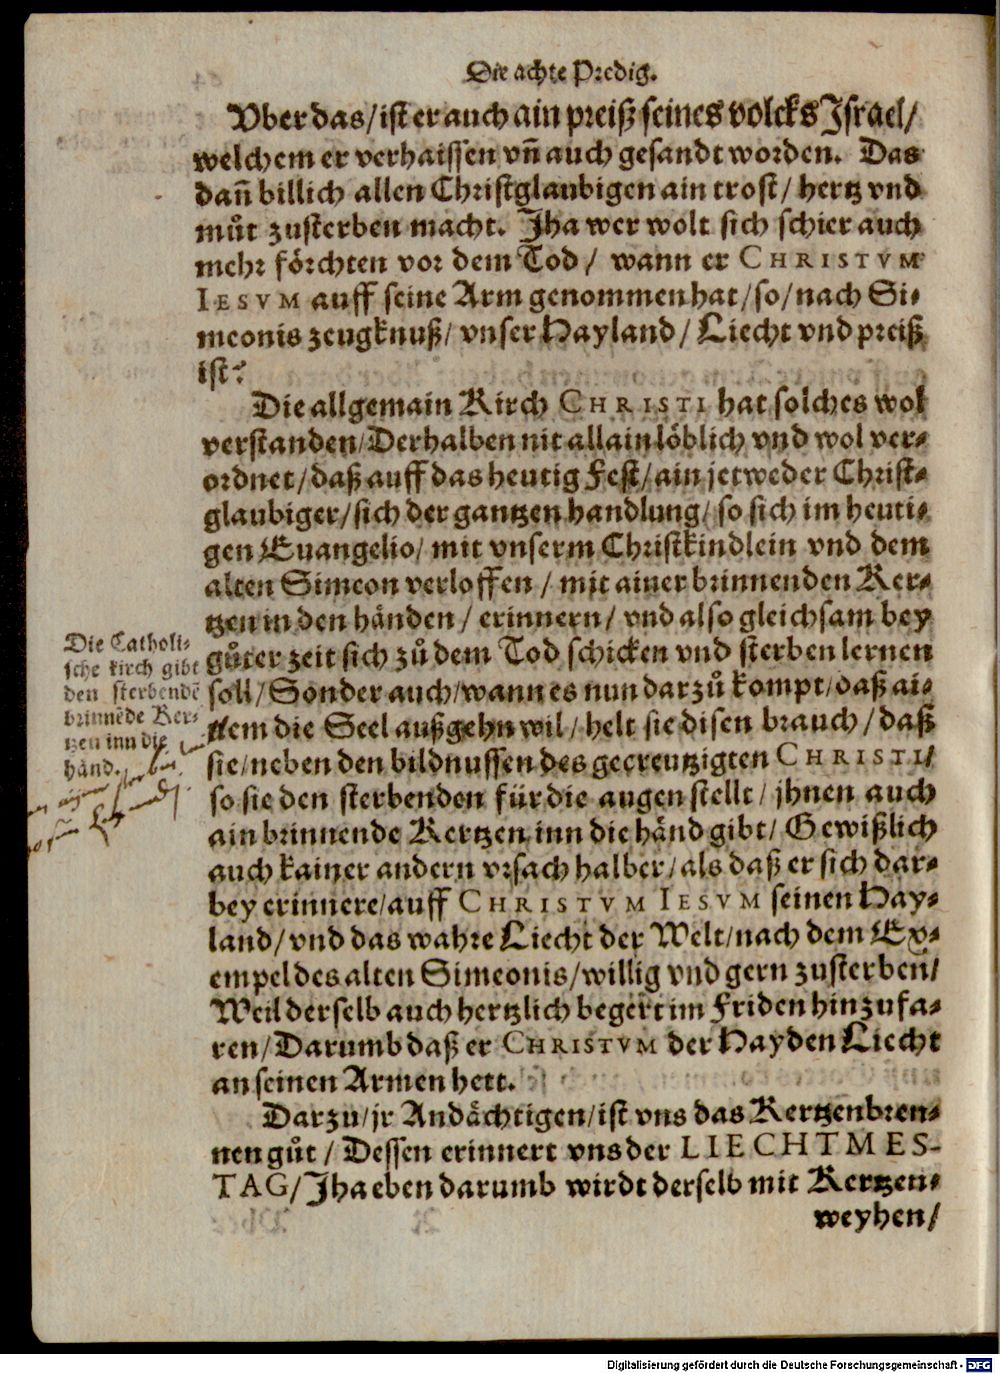 Die achte Predig.
Vber das/ ist er auch ain preiß seines volcks Israel/
welchem er verhaissen vñ auch gesandt worden. Das
dañ billich allen Christglaubigen ain trost/ hertz vnd
můt zusterben macht. Jha wer wolt sich schier auch
mehr förchten vor dem Tod/ wann er CHRISTVM
IESVM auff seine Arm genommen hat/ so/ nach Si-
meonis zeugknuß/ vnser Hayland/ Liecht vnd preiß
ist?
Die allgemain Kirch CHRISTI hat solches wol
verstanden/ Derhalben nit allain löblich vnd wol ver-
ordnet/ daß auff das heutig Fest/ ain jetweder Christ-
glaubiger/ sich der gantzen handlung/ so sich im heuti-
gen Euangelio/ mit vnserm Christkindlein vnd dem
alten Simeon verloffen/ mit ainer brinnenden Ker-
tzen in den händen/ erinnern/ vnd also gleichsam bey
gůter zeit sich zů dem Tod schicken vnd sterben lernen
soll/ Sonder auch/ wann es nun darzů kompt/ daß ai-
nem die Seel außgehn wil/ helt sie disen brauch/ daß
sie/ neben den bildnussen des gecreutzigten CHRISTI/
so sie den sterbenden für die augen stellt/ jhnen auch
ain brinnende Kertzen inn die händ gibt/ Gewißlich
auch kainer andern vrsach halber/ als daß er sich dar-
bey erinnere/ auff CHRISTVM IESVM seinen Hay-
land/ vnd das wahre Liecht der Welt/ nach dem Ex-
empel des alten Simeonis/ willig vnd gern zusterben/
Weil derselb auch hertzlich begert im Friden hinzufa-
ren/ Darumb daß er CHRISTVM der Hayden Liecht
an seinen Armen hett.
Darzu/ jr Andächtigen/ ist vns das Kertzenbren-
nen gůt/ Dessen erinnert vns der LIECHTMES-
TAG/ Jha eben darumb wirdt derselb mit Kertzen-
weyhen/
Die Catholi-
sche kirch gibt
den sterbendẽ
brinnẽde Ker-
tzen inn die
händ.
Digitalisierung gefördert durch die Deutsche Forschungsgemeinschaft - DFG